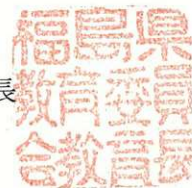 長
福島県
教育委員
会教育長